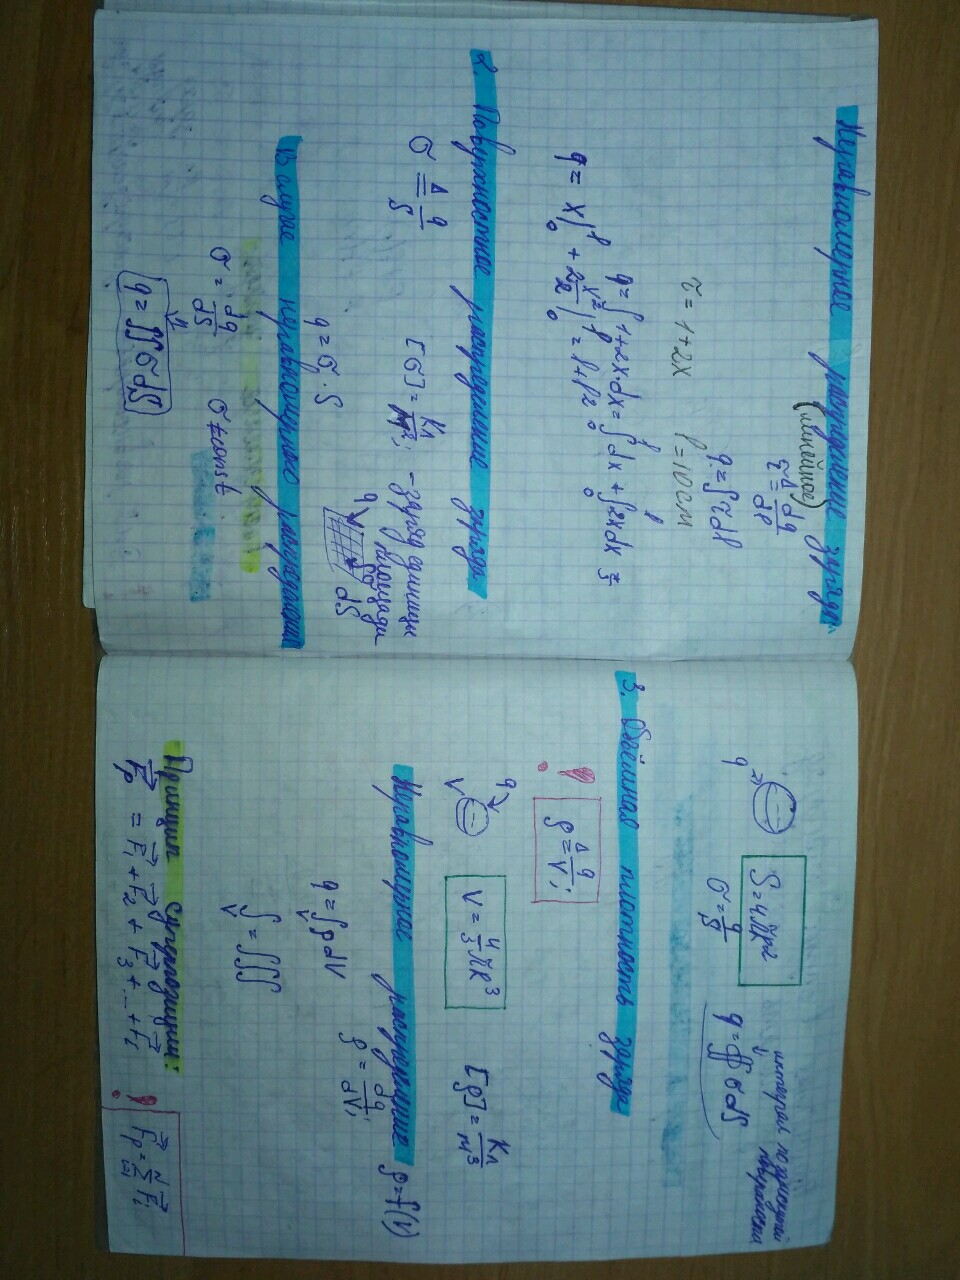 Неравномерное распределение заряда
(линейное)
τ ≜ dq/dl
q = ∫τdl
τ = 1+2x    l = 10 см
q = ∫1+2x·dx = ∫₀ˡ dx + ∫₀ˡ 2xdx =
q = x|₀ˡ + 2x²/2|₀ˡ = l + l²
2. Поверхностное распределение заряда.
σ ≜ q/S    [σ] = Кл/м²; - заряд единицы
площади
q = σ·S    q    dq    dS
В случае неравномерного распределения
σ = dq/dS    σ ≠ const
q = ∬σdS
интеграл по замкнутой
поверхности
q    S = 4πR²    q = ∯σdS
σ = q/S
3. Объёмная плотность заряда
! ρ ≜ q/V;    [ρ] = Кл/м³
q    V    V = 4/3 πR³
Неравномерное распределение ρ = f(V)
ρ = dq/dV;
q = ∫ρdV
V
∫ = ∭
V
Принцип суперпозиции:
F⃗р = F⃗₁ + F⃗₂ + F⃗₃ + ... + F⃗i
! F⃗р = Σ F⃗i
N
i=1